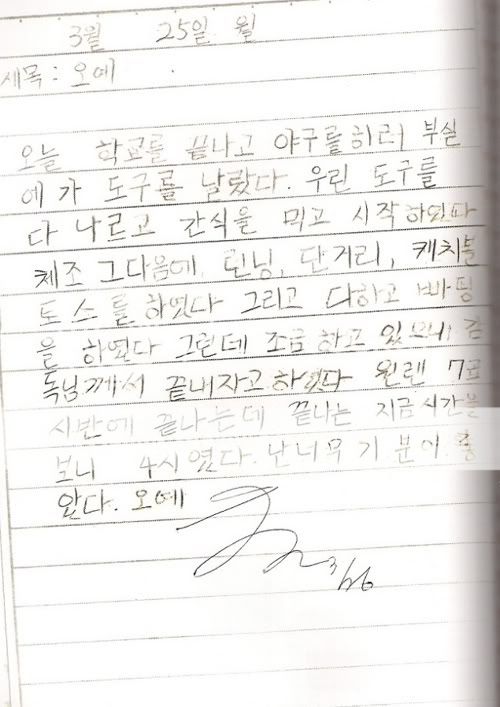 3월 25일 월
제목: 오예
오늘 학교를 끝나고 야구를하러 부실
에가 도구를 날랐다. 우린 도구를
다 나르고 간식을 먹고 시작하였다
체조 그다음에 런닝, 단거리, 캐치볼
토스를하였다 그리고 다하고 빠띵
을 하였다 그런데 조금하고 있으니 감
독님께서 끝내자고하였다 원랜 7
시반에 끝나는데 끝나는 지금시간을
보니 4시였다. 난너무기분이 좋
았다. 오예
3/26